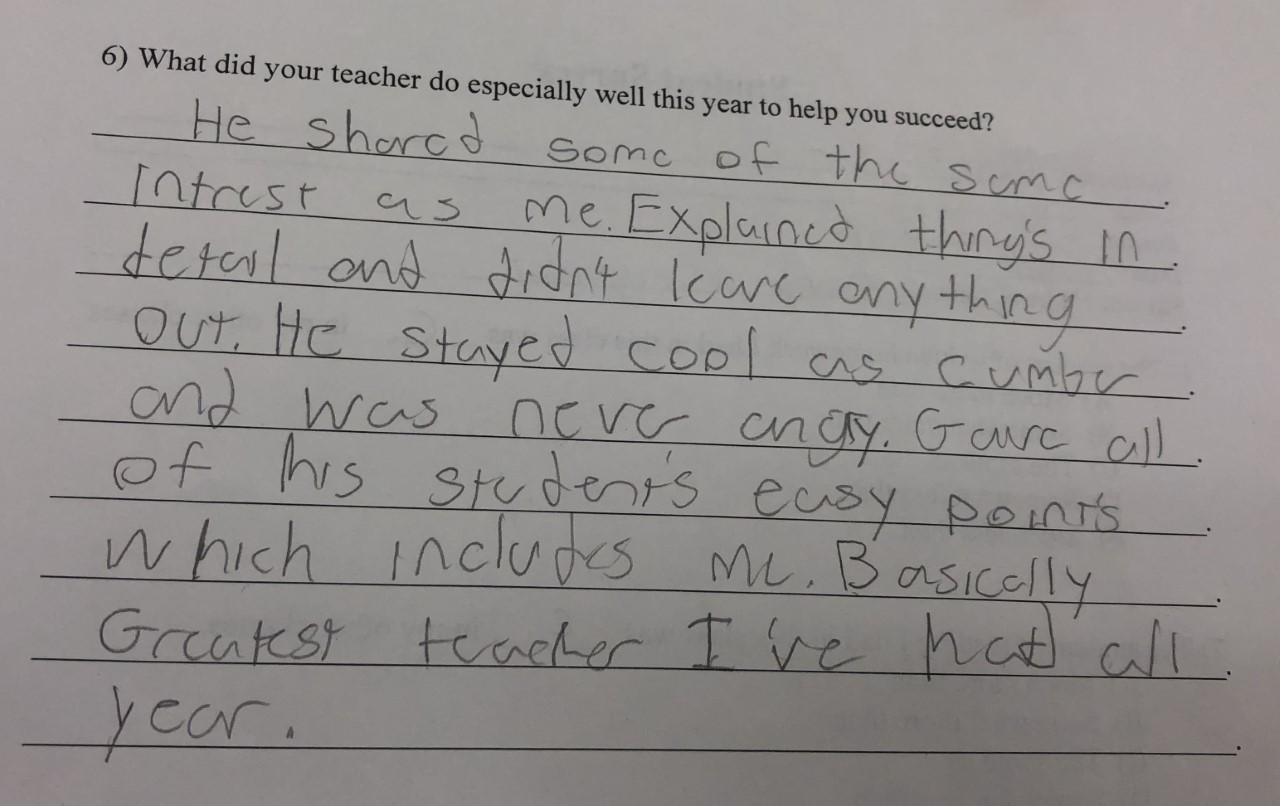 6) What did your teacher do especially well this year to help you succeed?
He shared some of the same
Intrest as me. Explained thing's in
detail and didn't leave anything
out. He stayed cool as cumber
and was never angry. Gave all
of his student's easy point's
which includes me. Basically
Greatest teacher I've had all
year.